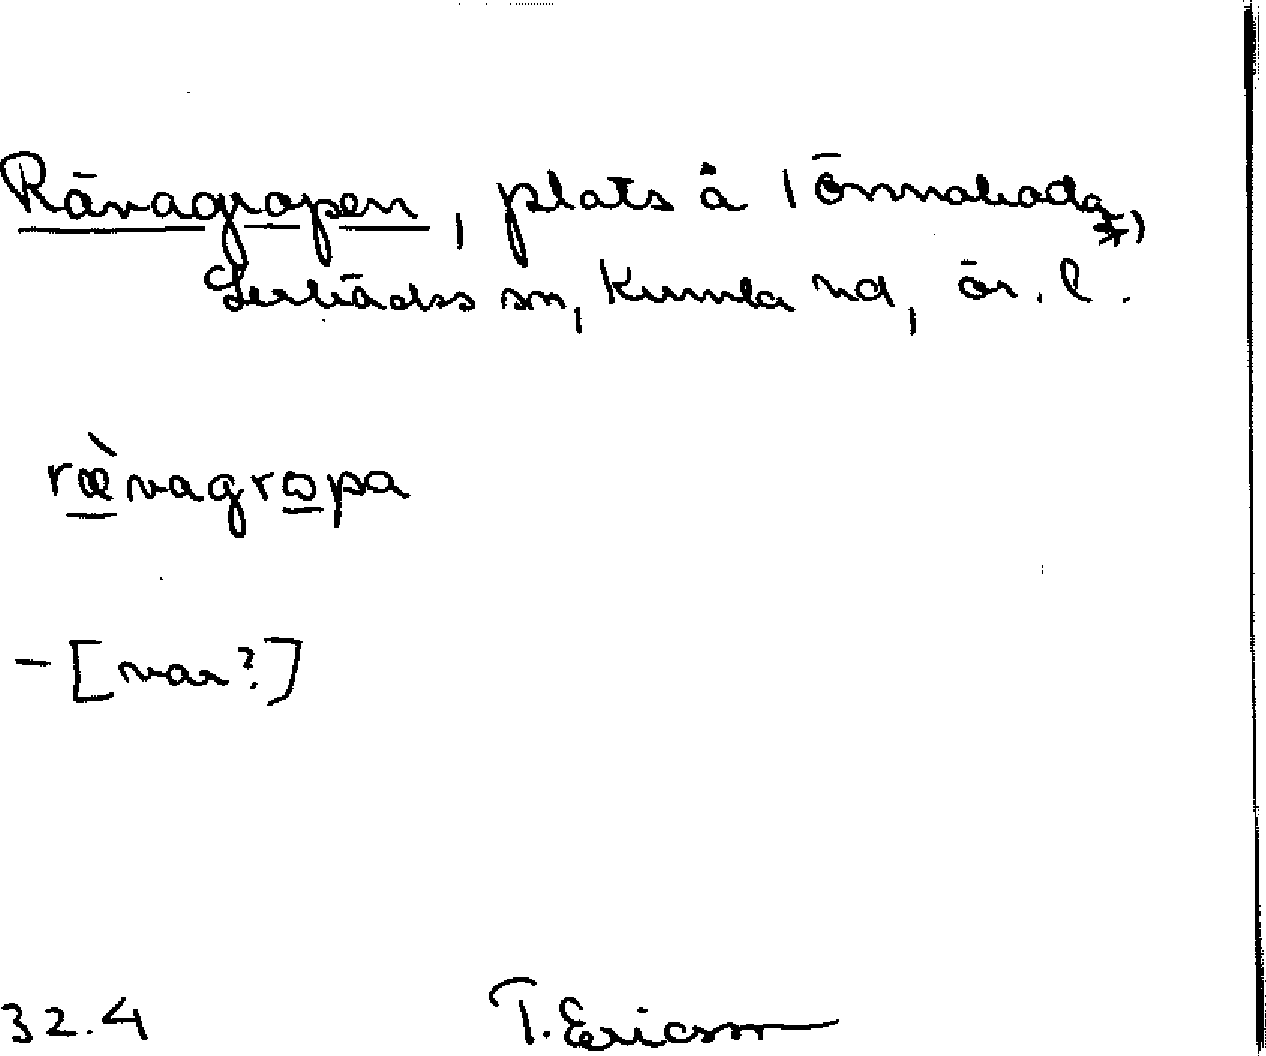 Rävagropen, plats å Tönnaboda*)
Lerbäcks sn, Kumla hd, ör. l.
rævagropa
– [var?]
32.4 T. Ericsson